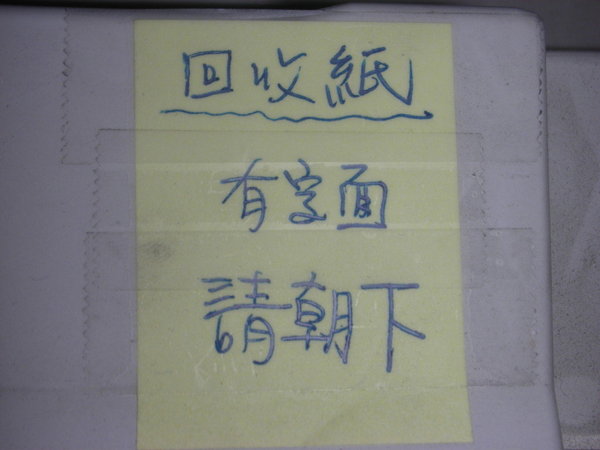 回收紙
有字面
請朝下